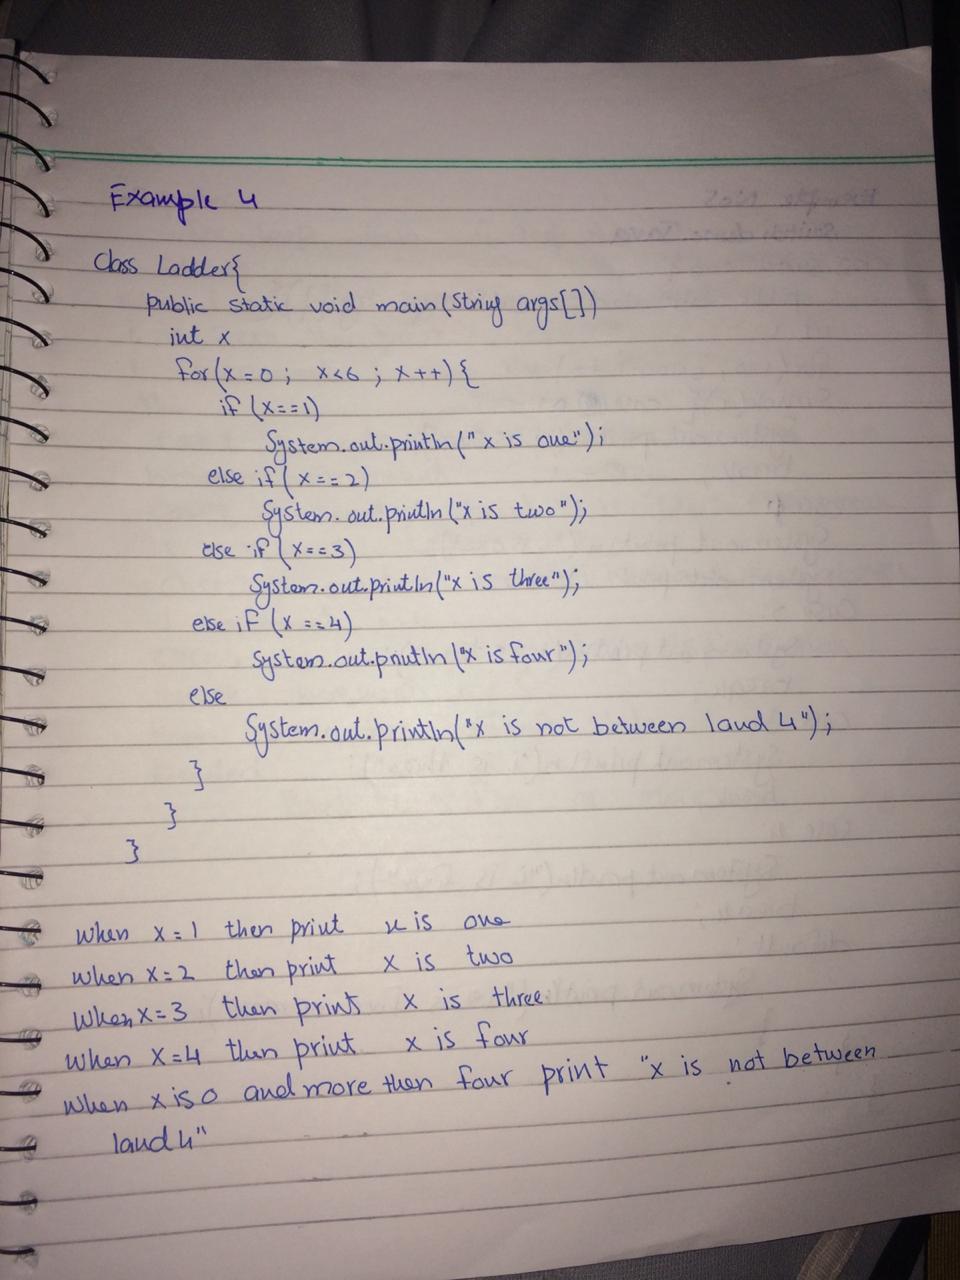 Example 4
Class Ladder{
public static void main(String args[])
int x
for(x=0; x<6; x++){
if (x==1)
System.out.println("x is one");
else if(x==2)
System.out.println("x is two");
else if(x==3)
System.out.println("x is three");
else if(x==4)
System.out.println("x is four");
else
System.out.println("x is not between 1and 4");
}
}
}
when x=1 then print x is one
when x=2 then print x is two
When x=3 then print x is three
when x=4 then print x is four
when x is 0 and more then four print "x is not between
1and 4"